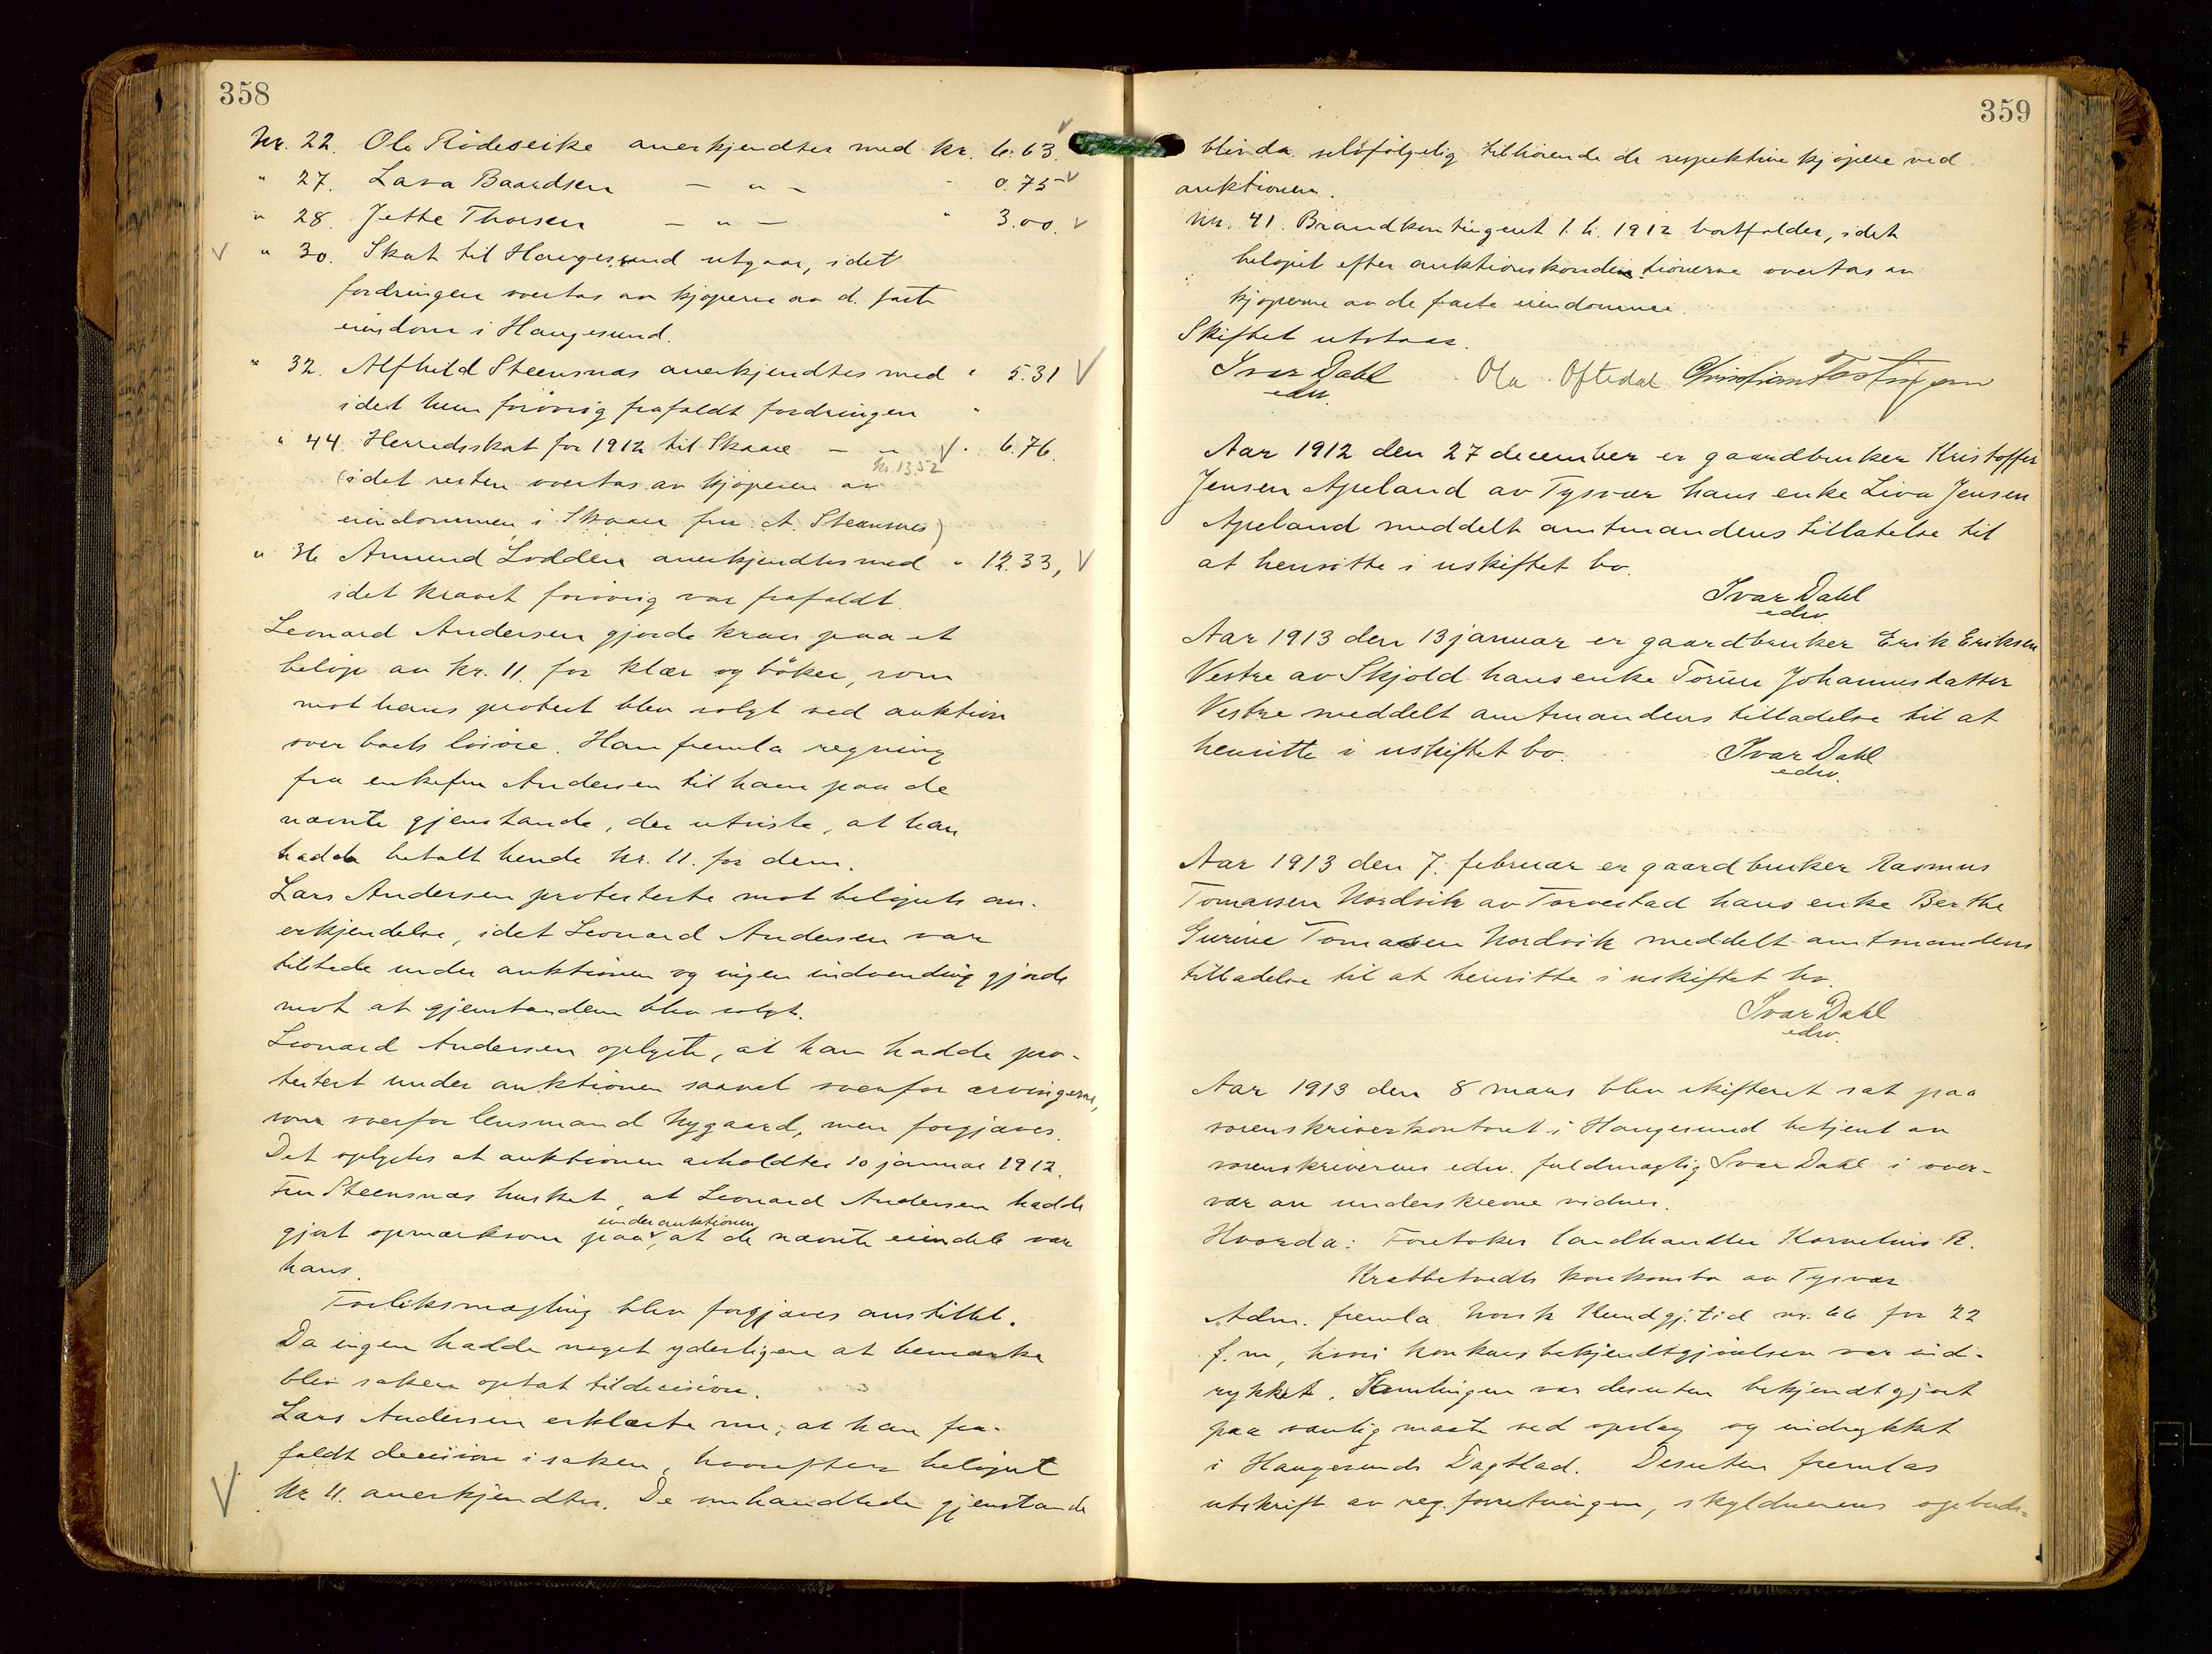 358
Nr. 22. Ole Rödeseike anerkjendtes med kr. 6.63.
" 27. Lava Baardsen — " — " 0.75
" 28. Jette Thorsen — " — " 3.00.
" 30. Skat til Haugesund utgaar, idet
fordringen overtas av kjøperne av d. faste
eiendom i Haugesund.
" 32. Alfhild Steensnæs anerkjendtes med " 5.31
idet hun forøvrig frafaldt fordringen "
" 44. Herredsskat for 1912 til Skaare — " — " 6.76.
kr. 13.52
(idet resten overtas av kjøperen av
eiendommen i Skaare fru A. Steensnes)
" 36 Amund Lodden anerkjendtes med " 12.33,
idet kravet forøvrig var frafaldt.
Leonard Andersen gjorde krav paa et
beløp av kr. 11. for klær og bøker, som
mot hans protest blev solgt ved auktion
over boets løsøre. Han fremla regning
fra enkefru Andersen til ham paa de
nævnte gjenstande, der utviste, at han
hadde betalt hende kr. 11. for dem.
Lars Andersen protesterte mot beløpets an-
erkjendelse, idet Leonard Andersen var
tilstede under auktionen og ingen indvending gjorde
mot at gjenstandene blev solgt.
Leonard Andersen oplyste, at han hadde pro-
testert under auktionen saavel overfor arvingerne,
som overfor lensmand Nygaard, men forgjæves.
Det oplystes at auktionen avholdtes 10 januar 1912.
Fru Steensnæs husket, at Leonard Andersen hadde
under auktionen
gjort opmerksom paa, at de nævnte eiendele var
hans.
Forliksmægling blev forgjæves anstillet.
Da ingen hadde noget yderligere at bemærke
blev saken optat til decision.
Lars Andersen erklærte nu, at han fra-
faldt decision i saken, hvorefter beløpet
kr 11. anerkjendtes. De omhandlede gjenstande
359
blir da selvfølgelig tilhørende de respektive kjøpere ved
auktionen.
Nr. 41. Brandkontingent 1. h. 1912 bortfalder, idet
beløpet efter auktionskonditionerne overtas av
kjøperne av de faste eiendomme.
Skiftet utstaar.
Ivar Dahl Ola Oftedal Christian
edsv.
Aar 1912 den 27 december er gaardbruker Kristoffer
Jensen Apeland av Tysvær hans enke Liva Jensen
Apeland meddelt amtmandens tillatelse til
at hensitte i uskiftet bo.
Ivar Dahl
edsv.
Aar 1913 den 13 januar er gaardbruker Erik Eriksen
Vestre av Skjold hans enke Torine Johannesdatter
Vestre meddelt amtmandens tilladelse til at
hensitte i uskiftet bo. Ivar Dahl
edsv.
Aar 1913 den 7. februar er gaardbruker Rasmus
Tomassen Nordvik av Torvestad hans enke Berthe
Gurine Tomassen Nordvik meddelt amtmandens
tilladelse til at hensitte i uskiftet bo.
Ivar Dahl
edsv.
Aar 1913 den 8 mars blev skifteret sat paa
sorenskriverkontoret i Haugesund betjent av
sorenskriverens edsv. fuldmægtig Ivar Dahl i over-
vær av underskrevne vidner.
Hvorda: Foretoges landhandler Kornelius R.
Krabbetvedts konkursbo av Tysvær
Adm. fremla Norsk Kundgj. tid nr. 66 for 22
f. m, hvori konkursbekjendtgjørelsen var ind-
rykket. Samlingen var desuten bekjendtgjort
paa vanlig maate ved opslag og indrykket
i Haugesunds Dagblad. Desuten fremlas
utskrift av reg. forretningen, skyldnerens opbuds-